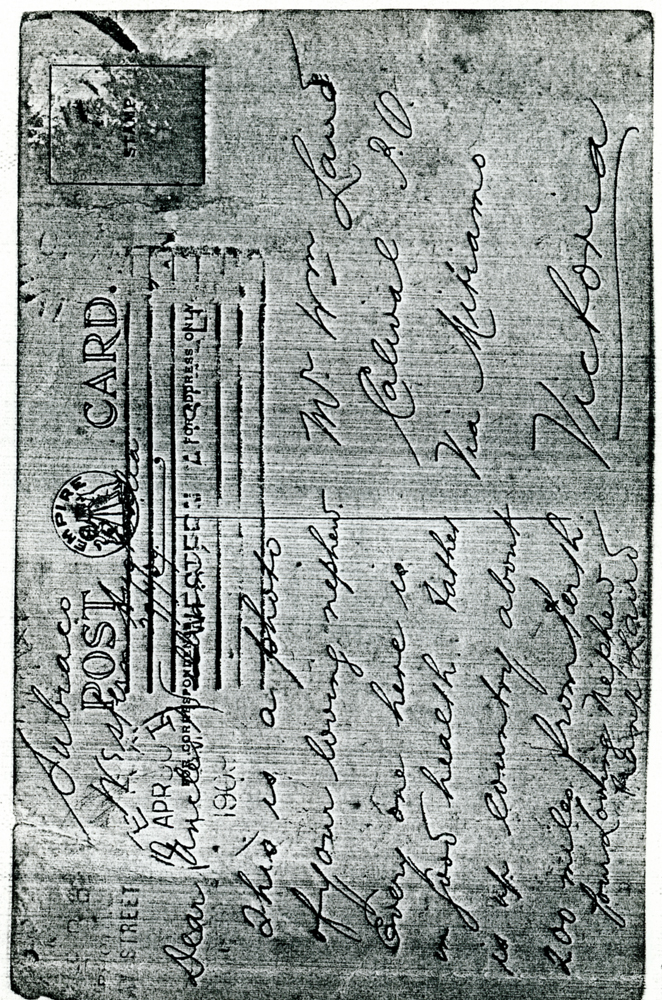 POST CARD.
EMPIRE
STAMP
STREET
APR 30
190
FOR CORRESPONDENCE
FOR ADDRESS ONLY
Subiaco
Western
Dear Uncle
This is a photo
of your loving nephew.
Every one here is
in good health Father
is up country about
200 miles from Perth.
your Loving Nephew
Frank Laird
Mr Wm Laird
Calivil P.O
Via Mitiamo
Victoria